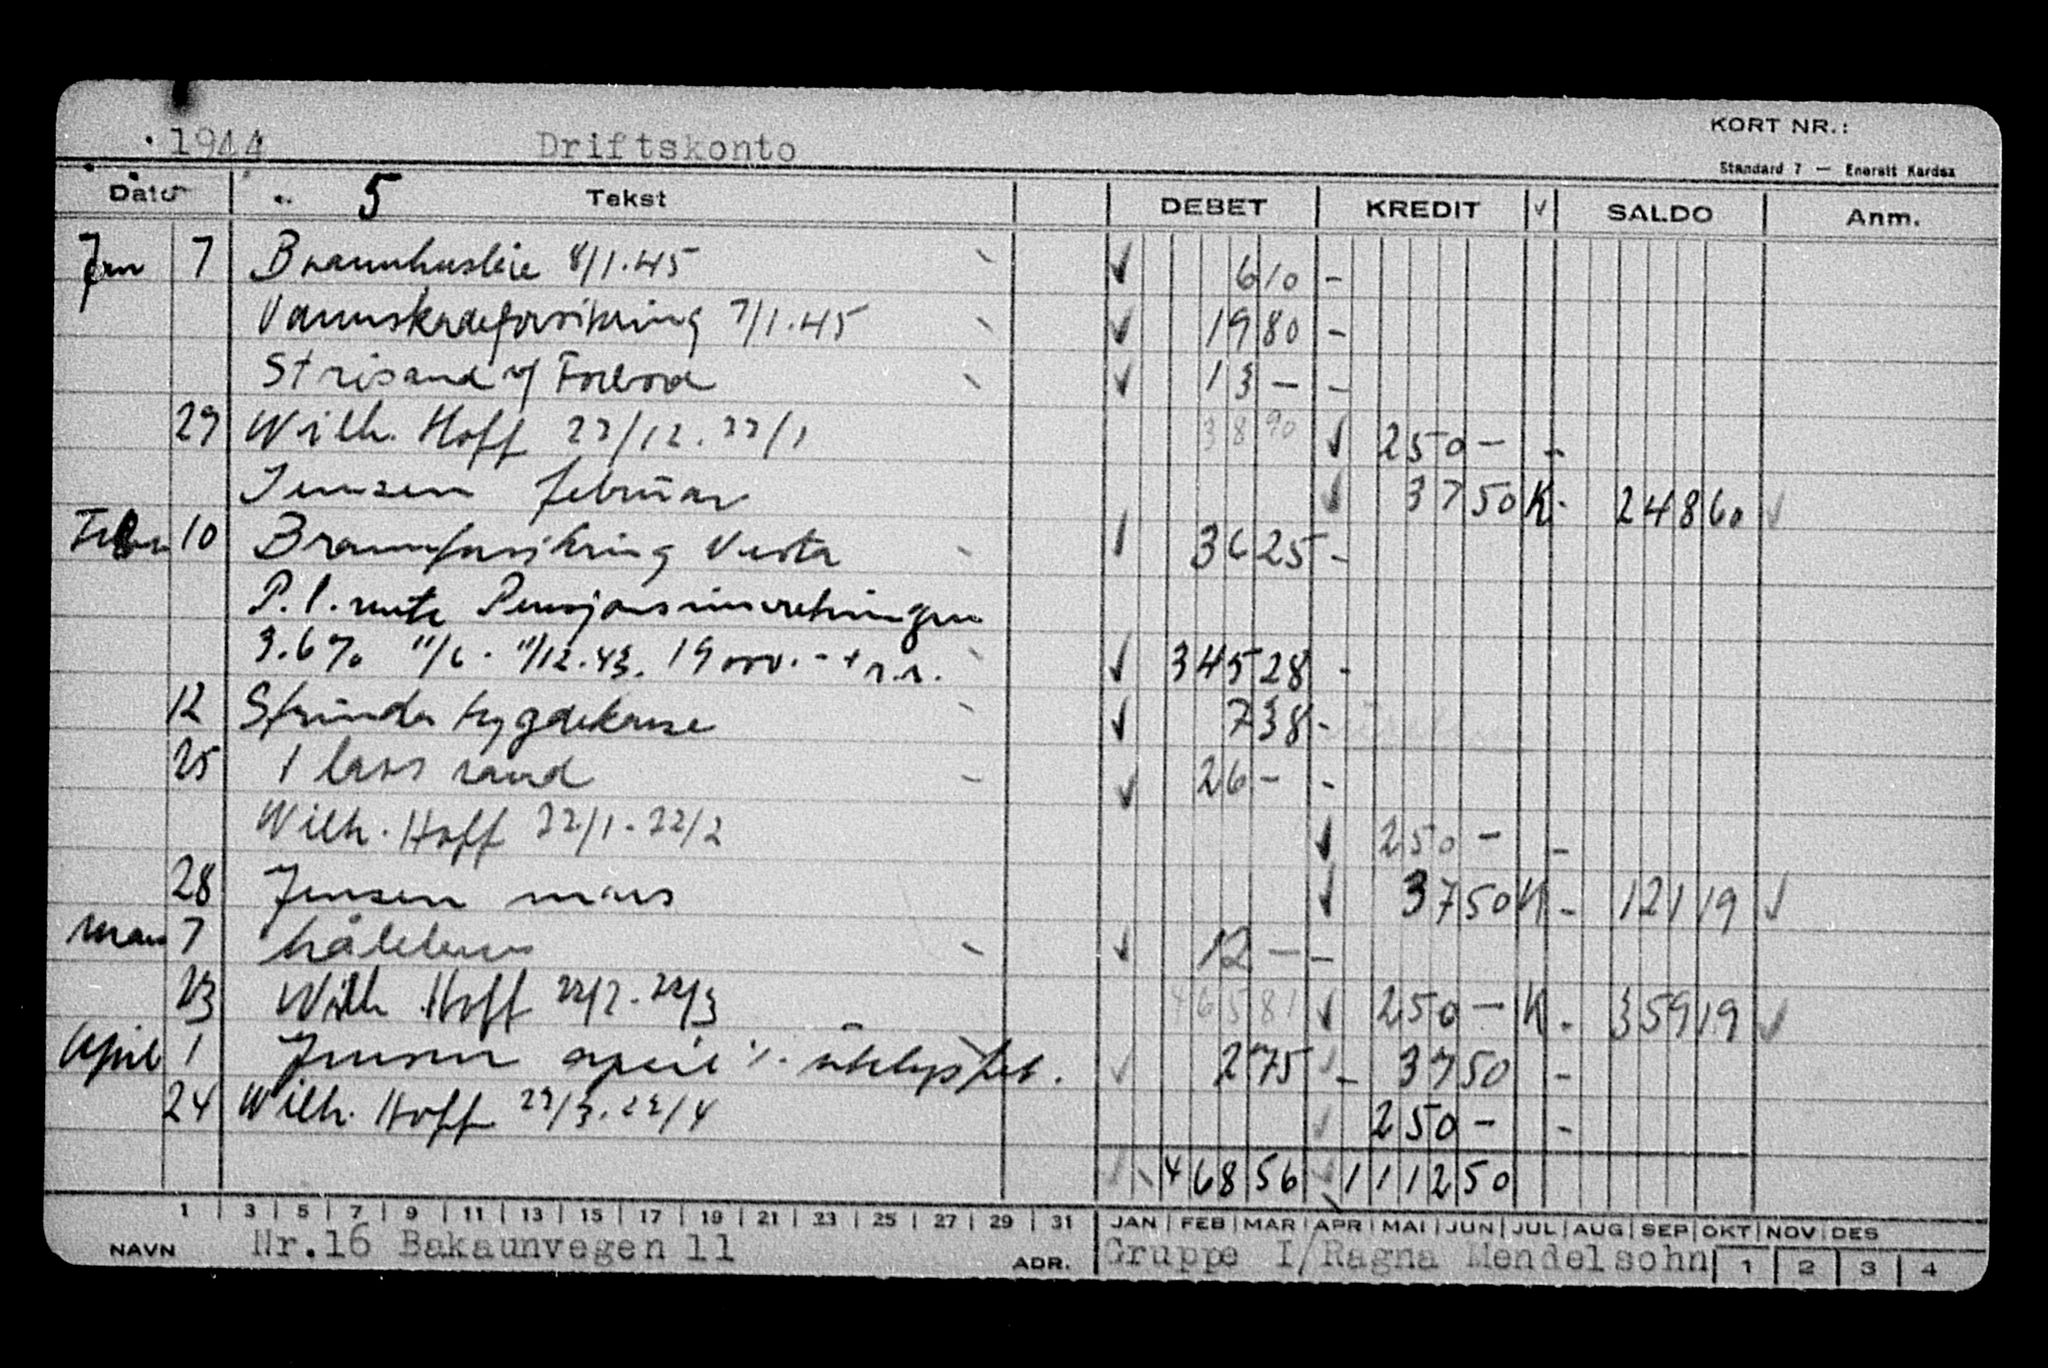 1944 Driftskonto KORT NR.:
Standard 7 — Enerett Kardex
Dato 5 Tekst DEBET KREDIT √ SALDO Anm.
Jan 7 Brannhusleie 8/1.45 √ 6 10 -
Vannskadeforsikring 7/1.45 √ 19 80 -
Strisand v/ √ 13 - -
29 Wilh. Hoff 22/12.22/1 38 90 √ 250 - -
Jensen februar √ 37 50 K - 248 60 √
Febr 10 Brannforsikring Vesta 36 25 -
P.l. rente Pensjonsinnretningen
3.6% 11/6 - 11/12.43. 19000.- + r.r. √ 345 28 -
12 Strinda trygdekasse √ 7 38 -
25 1 lass sand √ 26 - -
Wilh. Hoff 22/1-22/2 √ 250 - -
28 Jensen mars √ 37 50 K - 121 19 √
Mars 7 √ 12 - -
23 Wilh. Hoff 22/2-22/3 465 81 √ 250 - K - 359 19 √
April 1 Jensen april √ 2 75 √ - 37 50 -
24 Wilh. Hoff 22/3.22/4 √ 250 - -
√ 468 56 √ 1112 50
1 3 5 7 9 11 13 15 17 19 21 23 25 27 29 31 JAN FEB MAR APR MAI JUN JUL AUG SEP OKT NOV DES
NAVN Nr.16 Bakaunvegen 11 ADR. Gruppe I/Ragna Mendelsohn 1 2 3 4